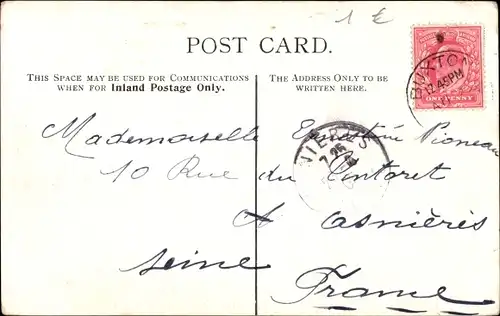 1 €
POST CARD.
THIS SPACE MAY BE USED FOR COMMUNICATIONS
WHEN FOR Inland Postage Only.
THE ADDRESS ONLY TO BE
WRITTEN HERE.
BUXTON
12.45PM
ONE PENNY
7 25
Mademoiselle Ernestine
10 Rue du
A Asnières
Seine
France